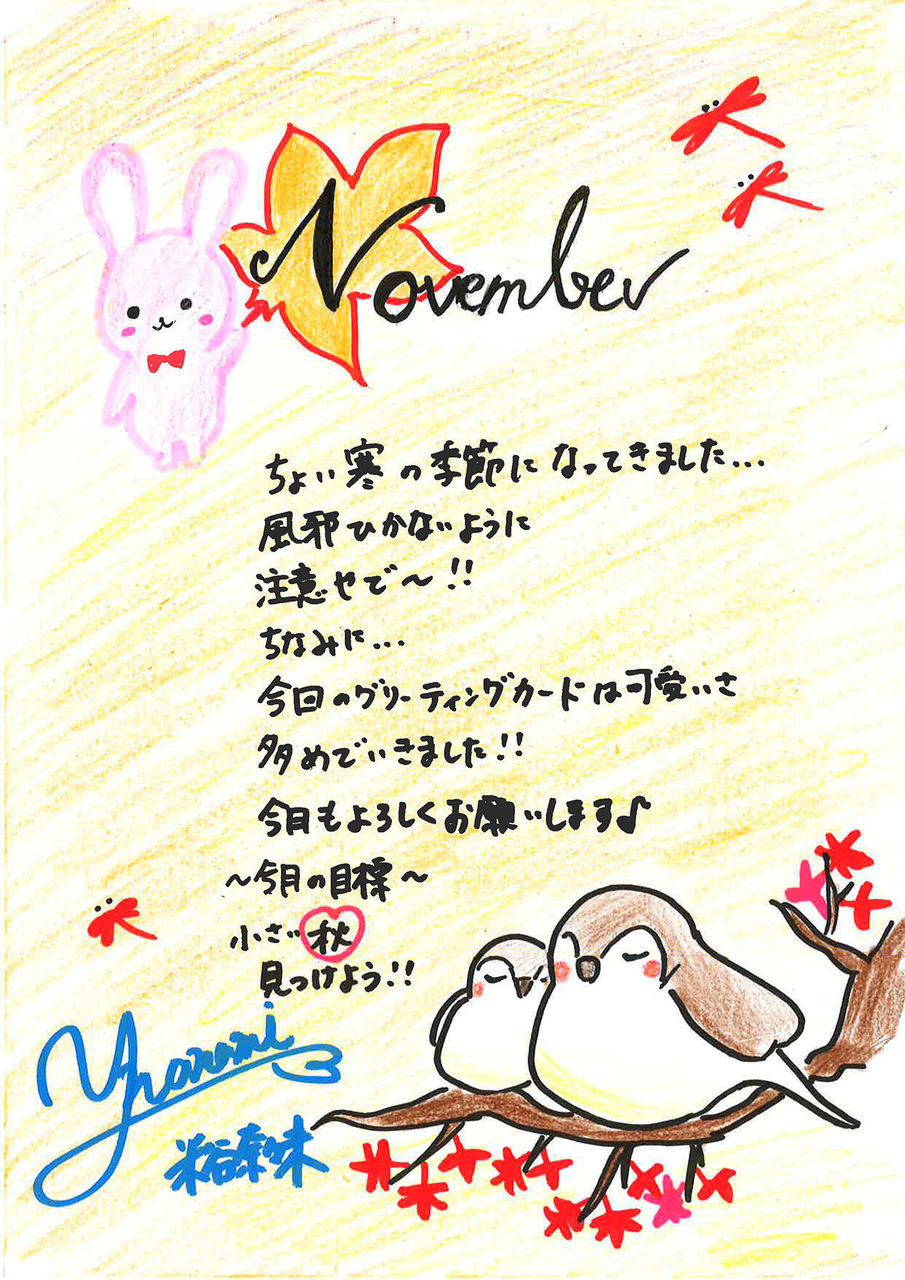 November
ちょい寒の季節になってきました...
風邪ひかないように
注意やで〜!!
ちなみに...
今回のグリーティングカードは可愛いさ
多めでいきました!!
今月もよろしくお願いします♪
〜今月の目標〜
小さい秋
見つけよう!!
米谷奈々未